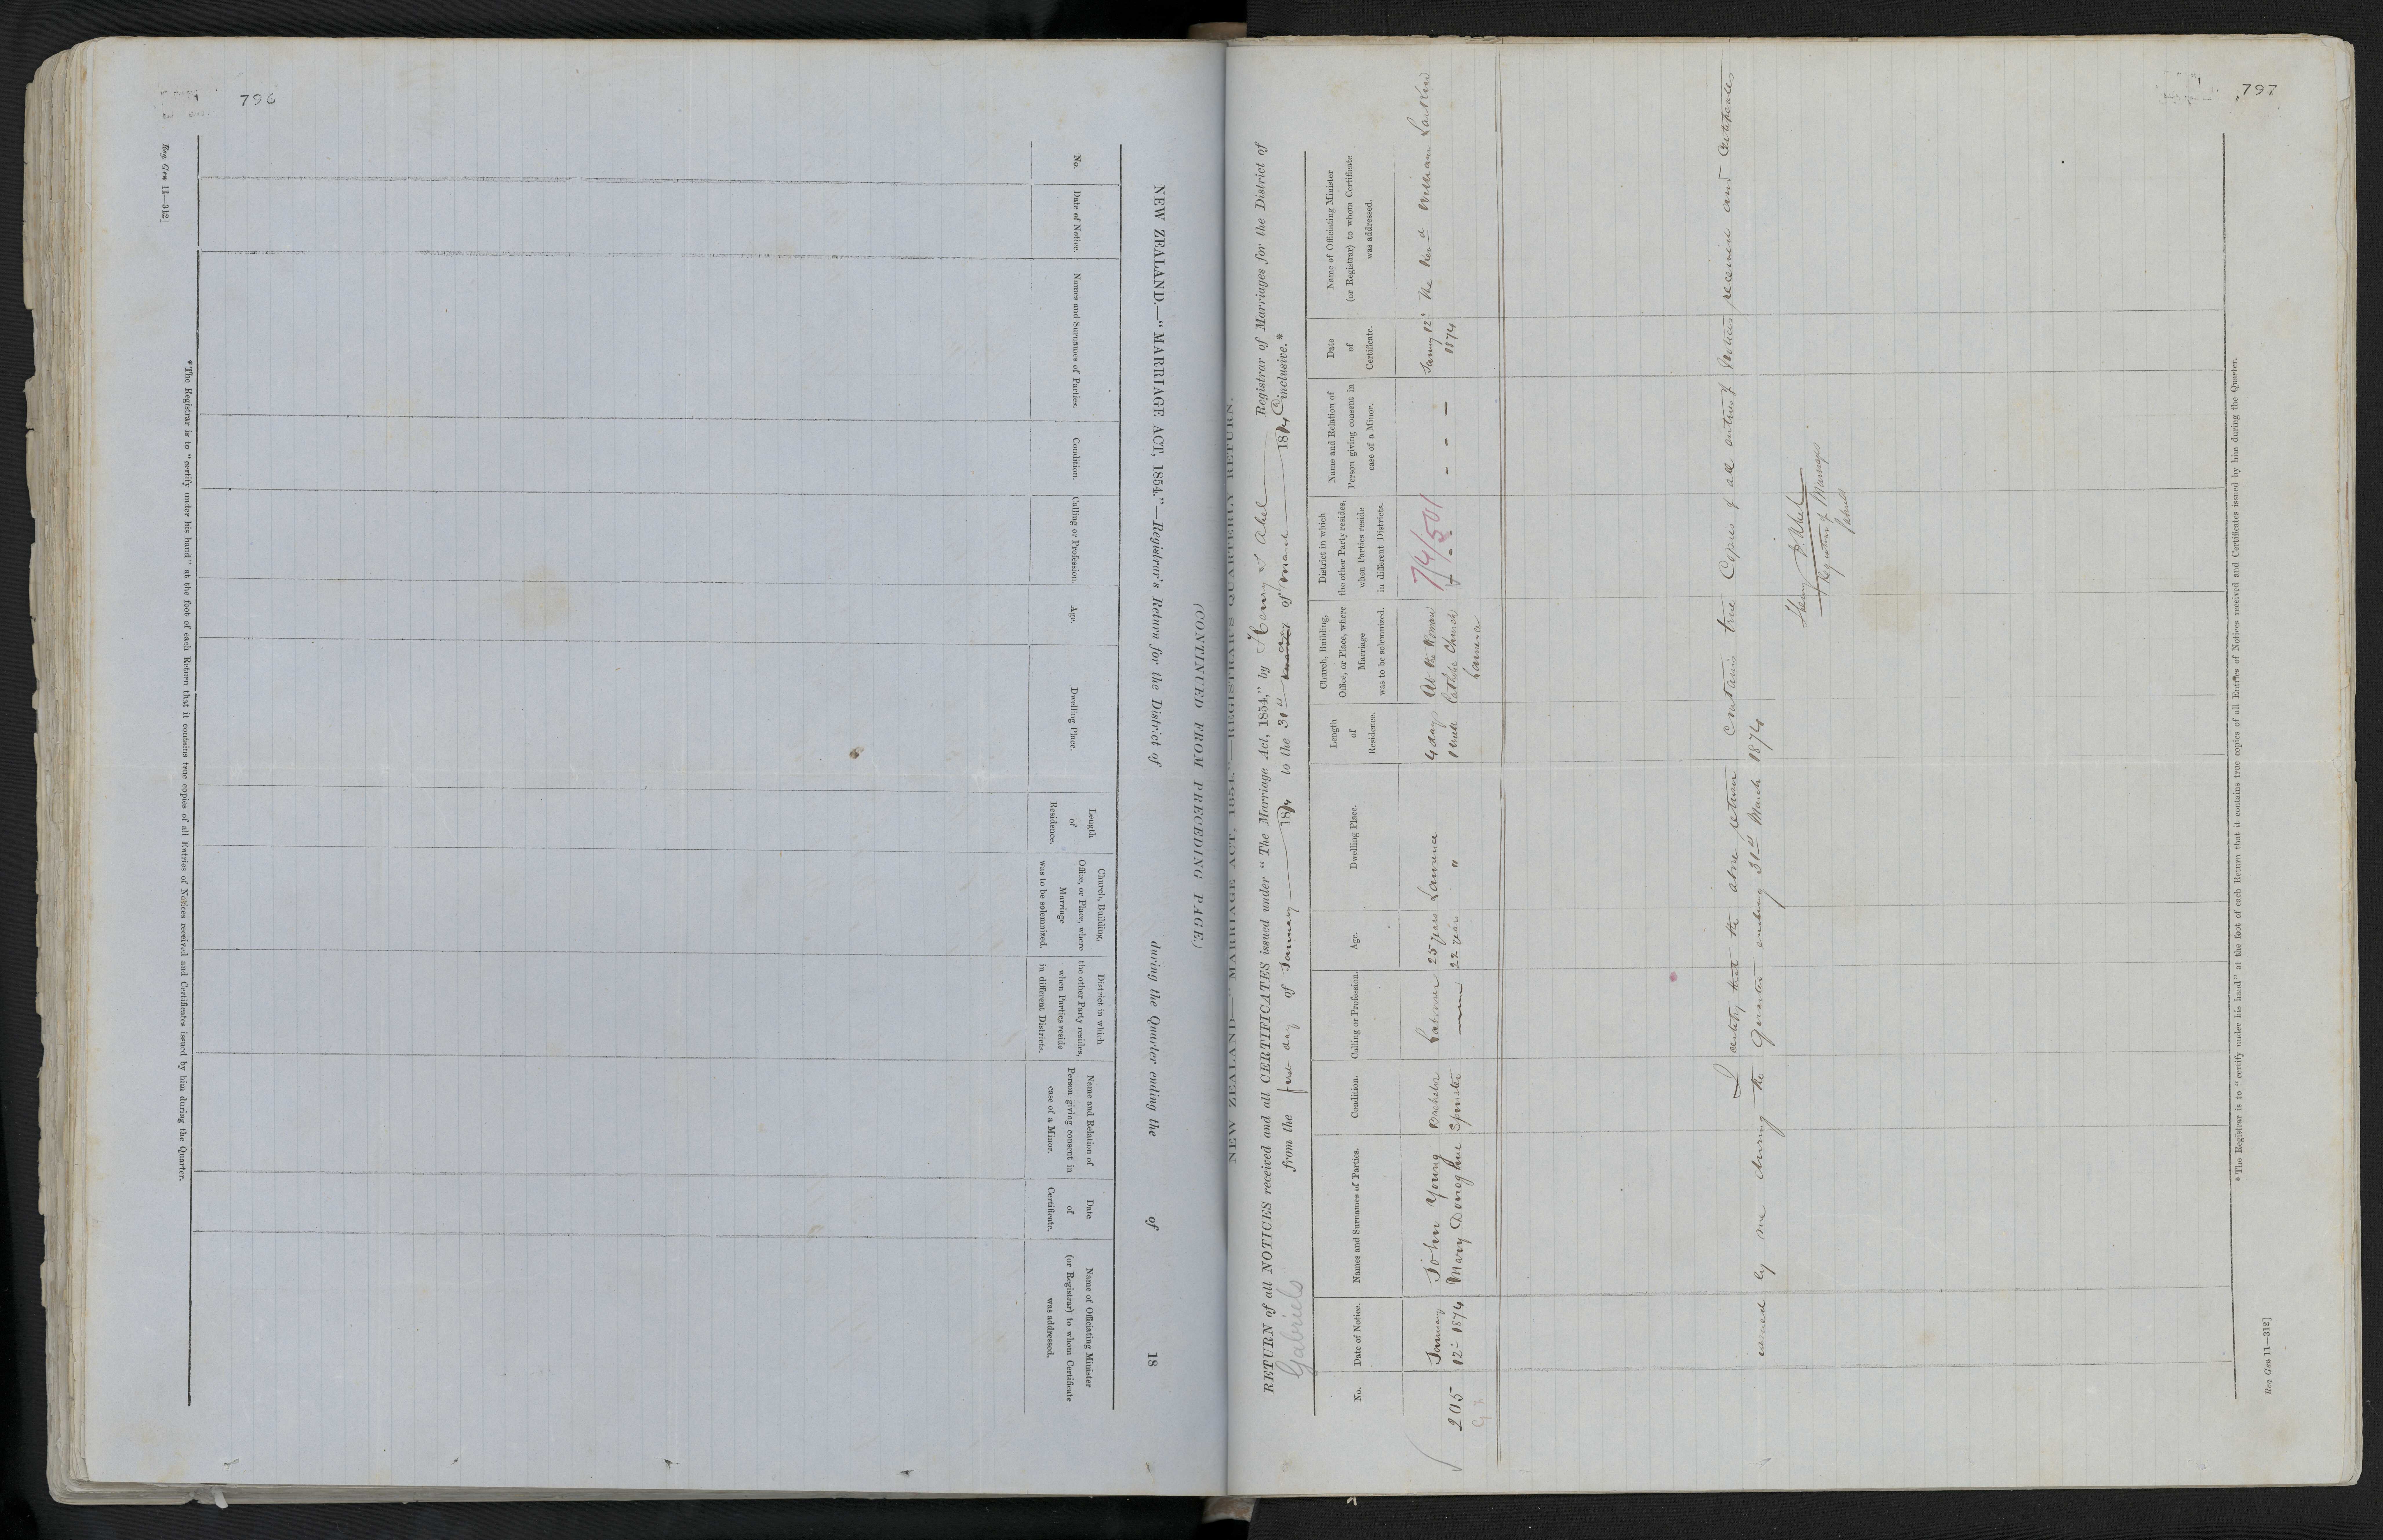 796
NEW ZEALAND.—"MARRIAGE ACT, 1854."—Registrar's Return for the District of during the Quarter ending the of 18
(CONTINUED FROM PRECEDING PAGE.)
No.
Date of Notice.
Names and Surnames of Parties.
Condition.
Calling or Profession.
Age.
Dwelling Place.
Length
of
Residence.
Church, Building,
Office, or Place, where
Marriage
was to be solemnized.
District in which
the other Party resides,
when Parties reside
in different Districts.
Name and Relation of
Person giving consent in
case of a Minor.
Date
of
Certificate.
Name of Officiating Minister
(or Registrar) to whom Certificate
was addressed.
*The Registrar is to "certify under his hand" at the foot of each Return that it contains true copies of all Entries of Notices received and Certificates issued by him during the Quarter.
Reg Gen 11—312]
797
NEW ZEALAND—"MARRIAGE ACT, 1854."—REGISTRAR'S QUARTERLY RETURN.
RETURN of all NOTICES received and all CERTIFICATES issued under "The Marriage Act, 1854," by Henry S Abel Registrar of Marriages for the District of
Gabriels from the first day of January 1874 to the 31st of March 1874 inclusive.*
No.
Date of Notice.
Names and Surnames of Parties.
Condition.
Calling or Profession.
Age.
Dwelling Place.
Length
of
Residence.
Church, Building,
Office, or Place, where
Marriage
was to be solemnized.
District in which
the other Party resides,
when Parties reside
in different Districts.
Name and Relation of
Person giving consent in
case of a Minor.
Date
of
Certificate.
Name of Officiating Minister
(or Registrar) to whom Certificate
was addressed.
205
January
12- 1874
John Young
Mary Donoghue
Bachelor
Spinster
25 years
22 years
Lawrence
"
4 days
1 week
At the Roman
Catholic Church
Lawrence
74/501
- - - -
January 12-
1874
The Revd William Larkin
I certify that the above return contains true Copies of all entries of Notices received and Certificates
issued by me during the Quarter ending 31st March 1874
Henry S. Abel
Registrar of Marriages
Gabriels
*The Registrar is to "certify under his hand" at the foot of each Return that it contains true copies of all Entries of Notices received and Certificates issued by him during the Quarter.
Reg Gen 11—312]